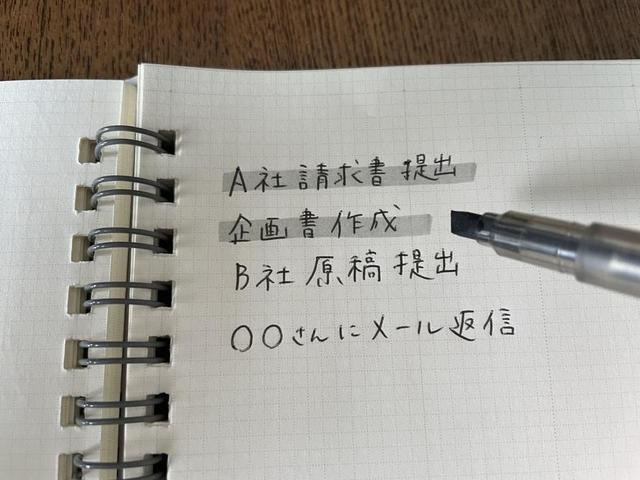 A社請求書提出
企画書作成
B社原稿提出
〇〇さんにメール返信